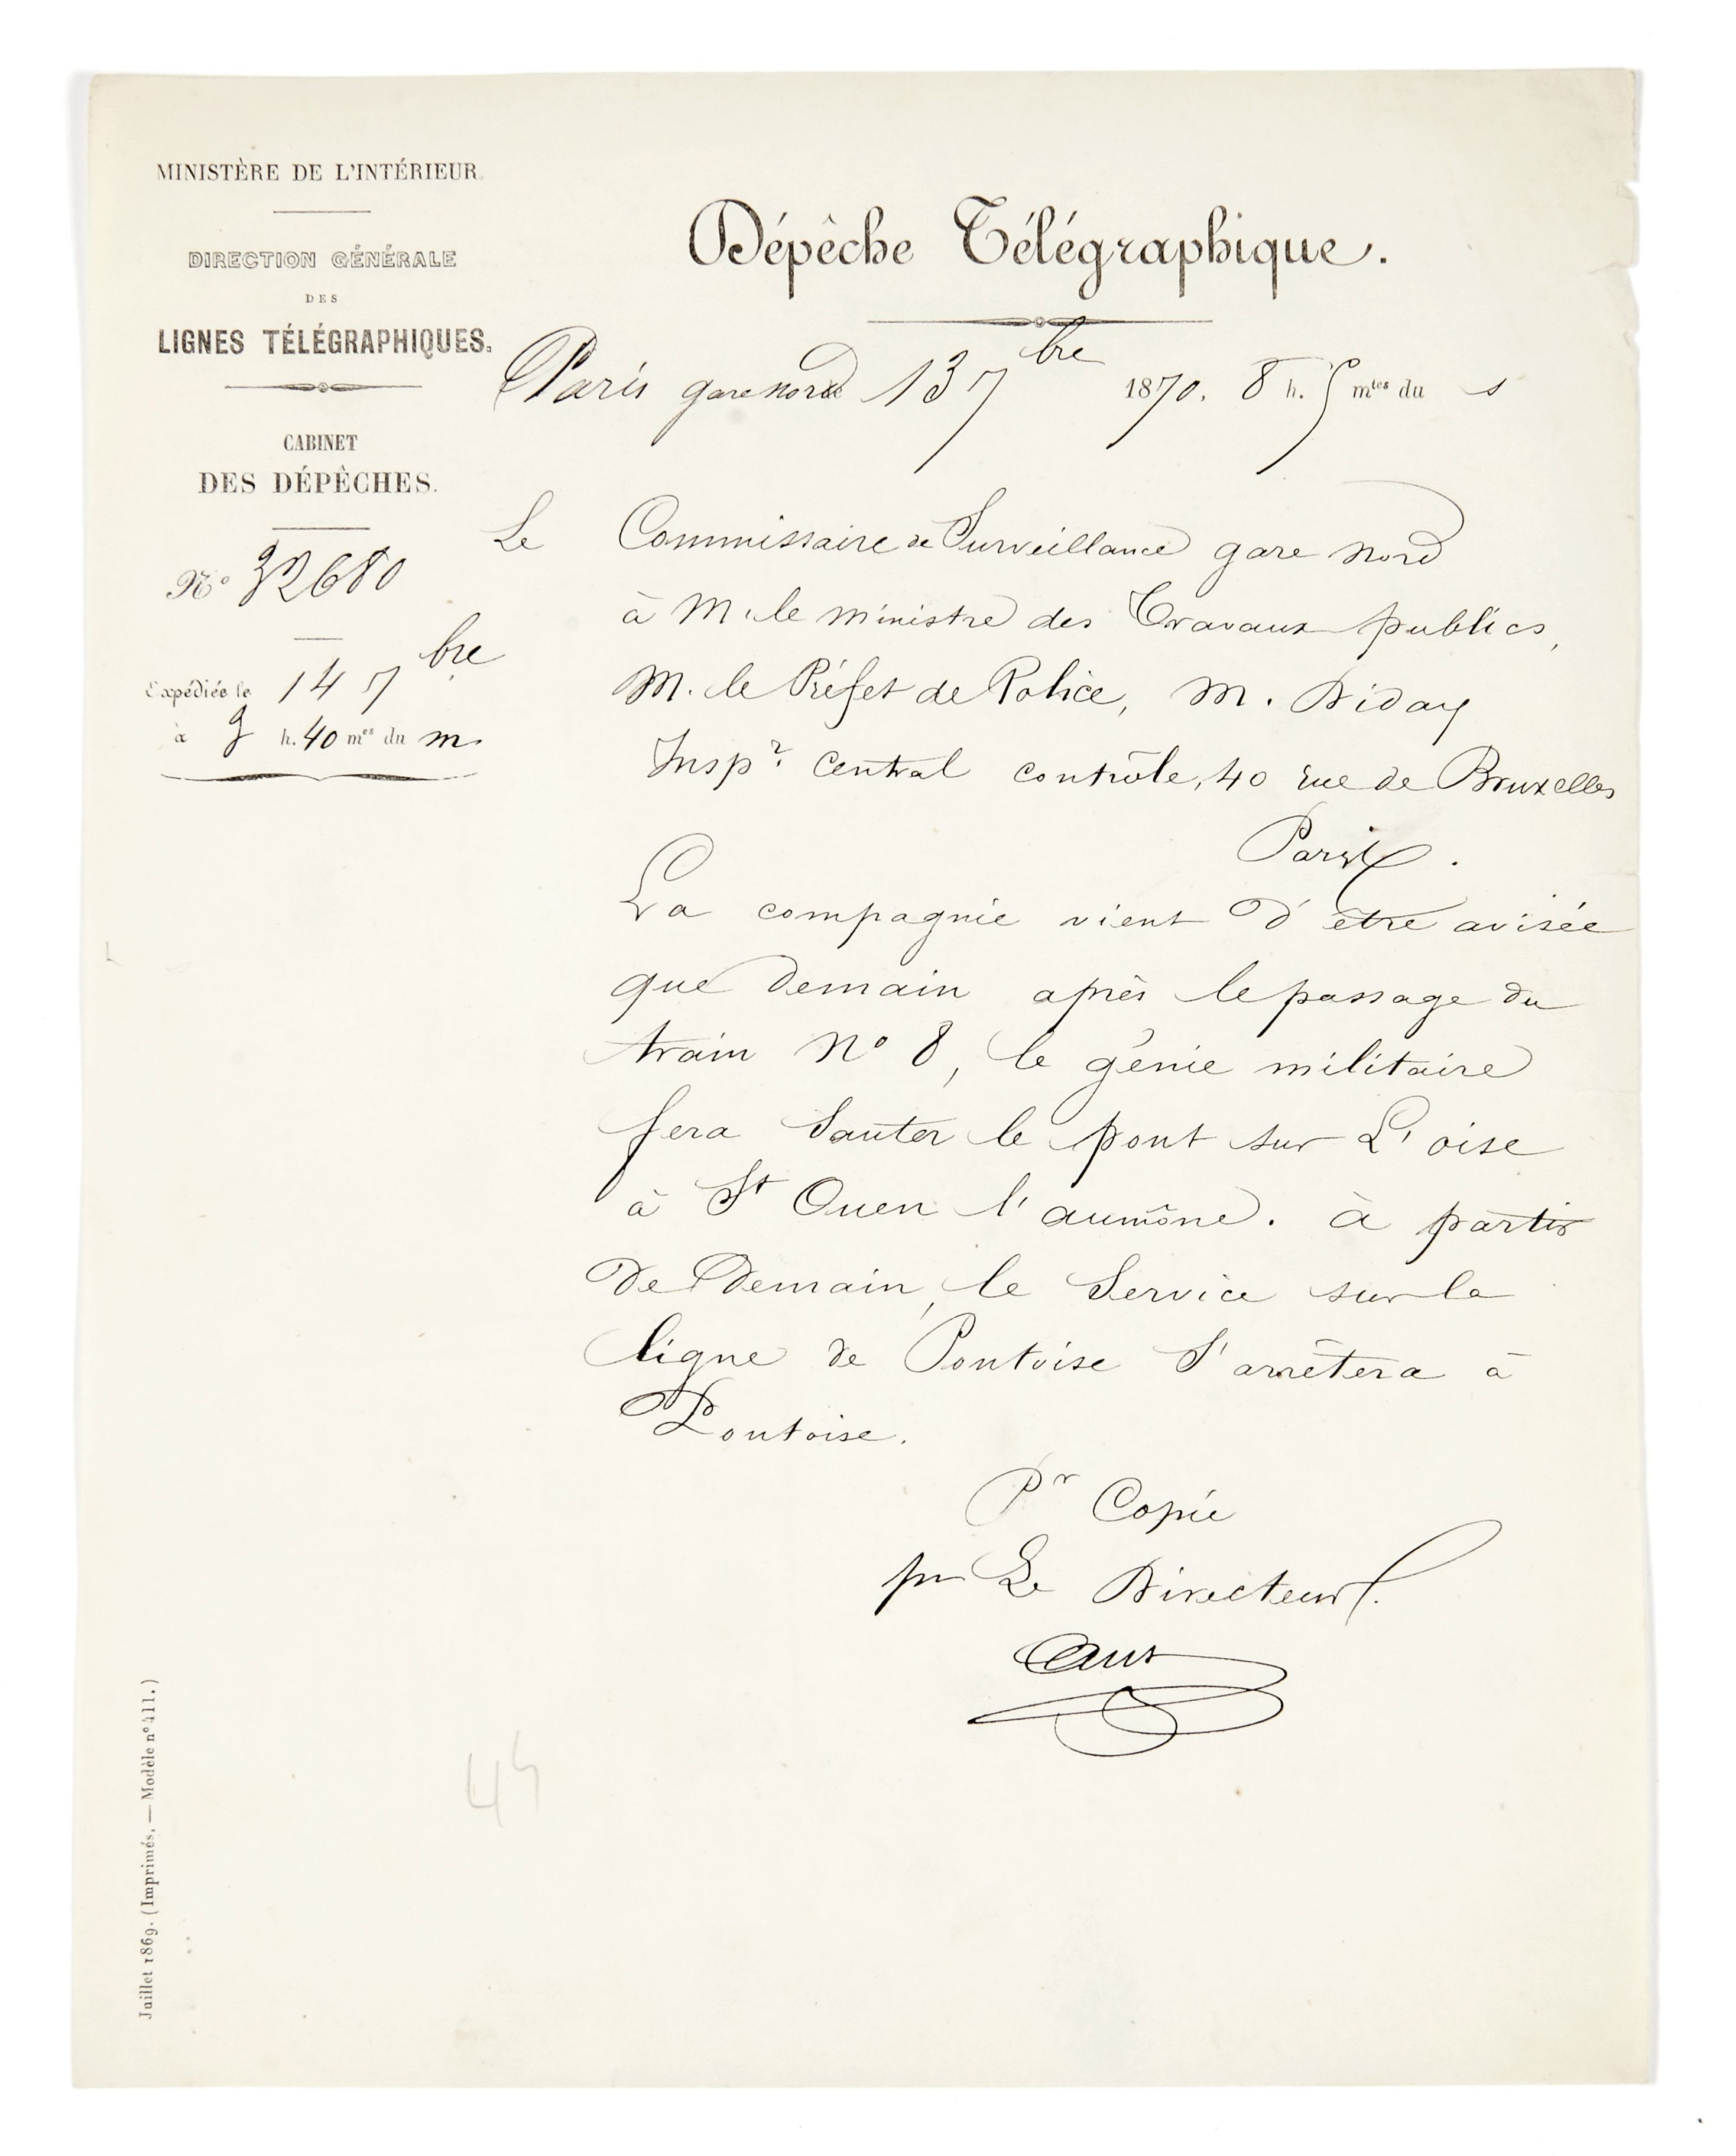 MINISTÈRE DE L'INTÉRIEUR.
DIRECTION GÉNÉRALE
DES
LIGNES TÉLÉGRAPHIQUES.
CABINET
DES DÉPÊCHES.
N° 32680
Expédiée le 14 7bre
à 9 h. 40 mes du m.
Dépêche Télégraphique.
Paris gare nord 13 7bre 1870. 8 h. 5 mtes du s
Le Commissaire de Surveillance gare nord
à M. le ministre des Travaux publics,
M. le Préfet de Police, M. Diday
Inspr central contrôle, 40 rue de Bruxelles
Paris.
La compagnie vient d'être avisée
que demain après le passage du
train N° 8, le génie militaire
fera sauter le pont sur L'oise
à St Ouen l'aumône. à partir
de Demain, le Service sur la
ligne de Pontoise S'arrêtera à
Pontoise.
Pr Copie
pr Le Directeur.
44
Juillet 1869. (Imprimés. — Modèle n° 411.)